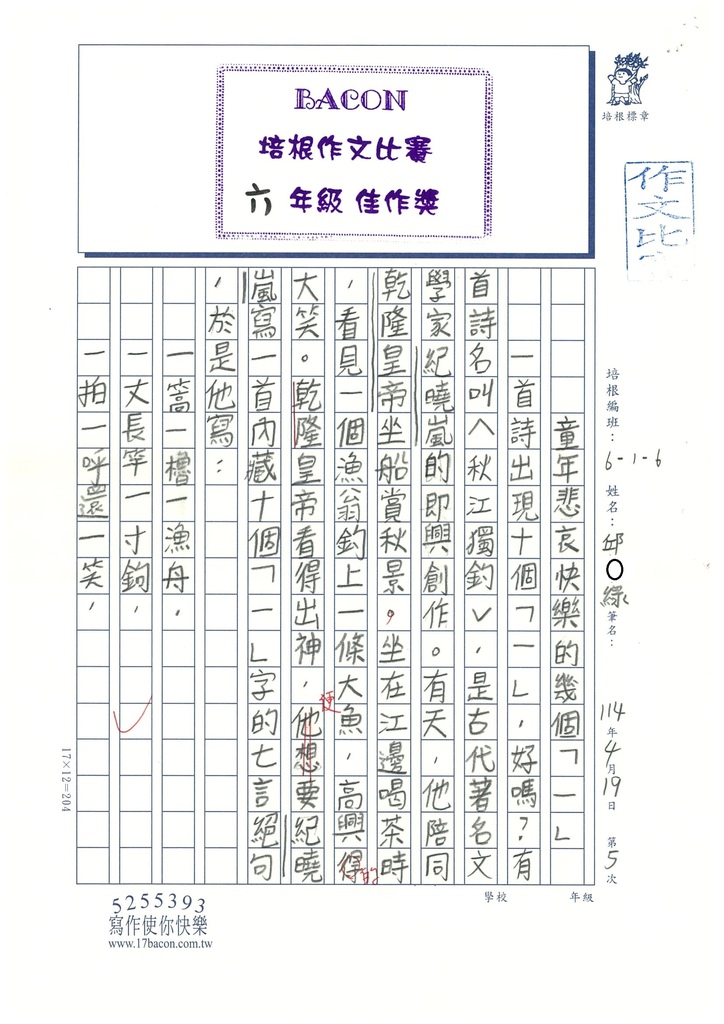 BACON
培根作文比賽
六年級 佳作獎
培根標章
作文比
培根編班：6-1-6 姓名：邱○綠 筆名： 114年4月19日 第5次
童年悲哀快樂的幾個「一」
一首詩出現十個「一」，好嗎？有
首詩名叫〈秋江獨釣〉，是古代著名文
學家紀曉嵐的即興創作。有天，他陪同
乾隆皇帝坐船賞秋景。坐在江邊喝茶時
，看見一個漁翁釣上一條大魚，高興得
的
大笑。乾隆皇帝看得出神，他想要紀曉
便
嵐寫一首內藏十個「一」字的七言絕句
，於是他寫：
一篙一櫓一漁舟，
一丈長竿一寸鉤，
一拍一呼還一笑，
17×12=204
學校 年級
5255393
寫作使你快樂
www.17bacon.com.tw